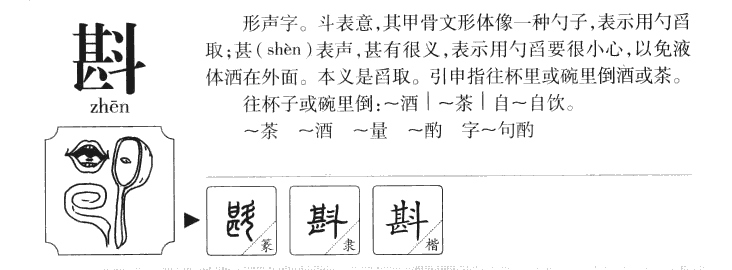 斟
zhēn
形声字。斗表意,其甲骨文形体像一种勺子,表示用勺舀
取;甚(shèn)表声,甚有很义,表示用勺舀要很小心,以免液
体洒在外面。本义是舀取。引申指往杯里或碗里倒酒或茶。
往杯子或碗里倒:~酒|~茶|自~自饮。
~茶 ~酒 ~量 ~酌 字~句酌
斟 篆
斟 隶
斟 楷